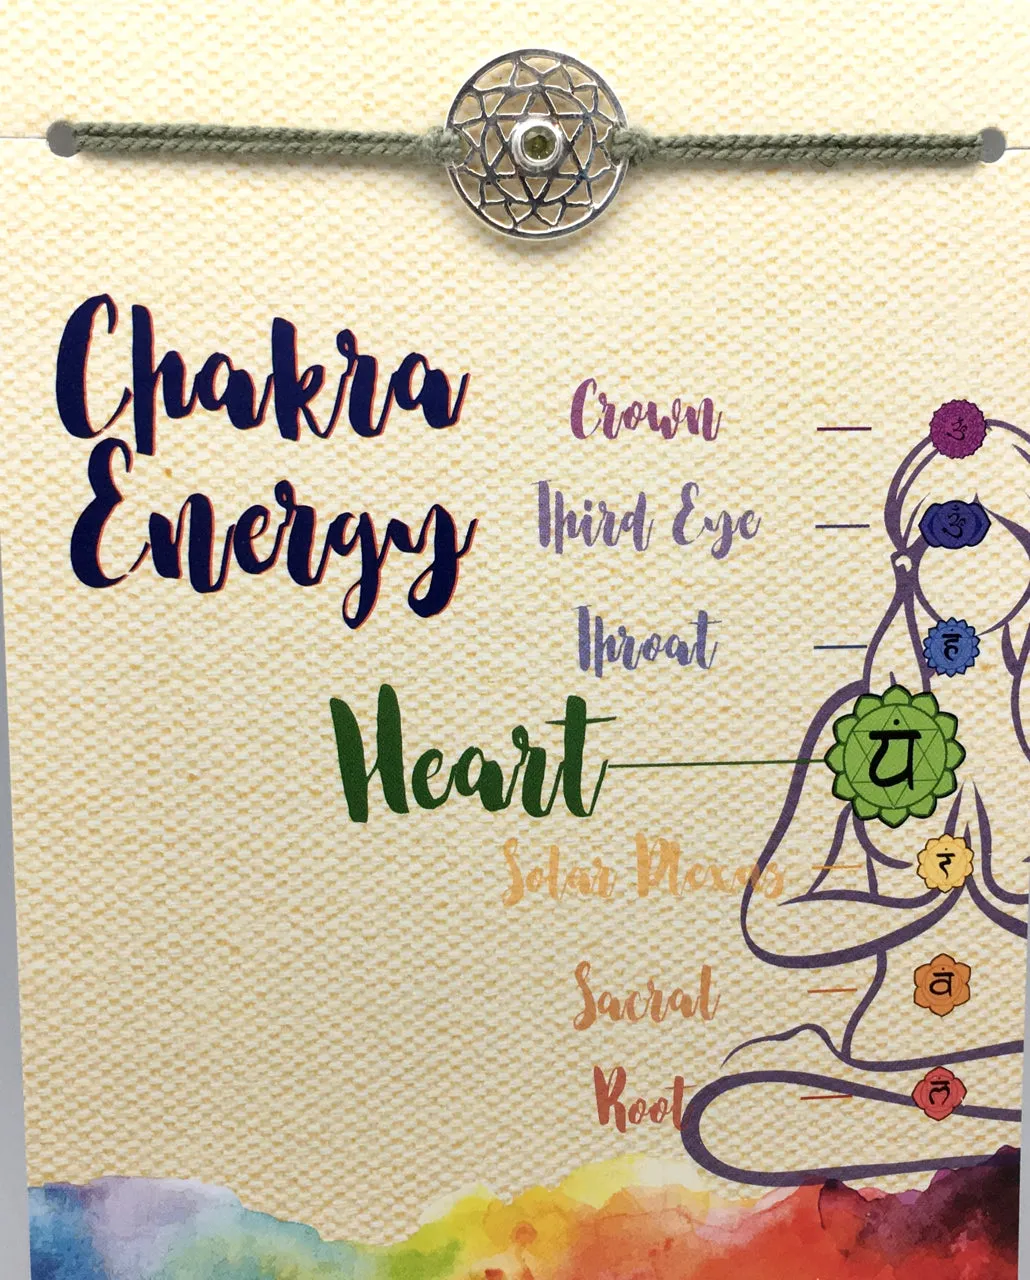 Chakra
Energy
Crown
ॐ
Third Eye
ॐ
Throat
हं
Heart
यं
Solar Plexus
रं
Sacral
वं
Root
लं